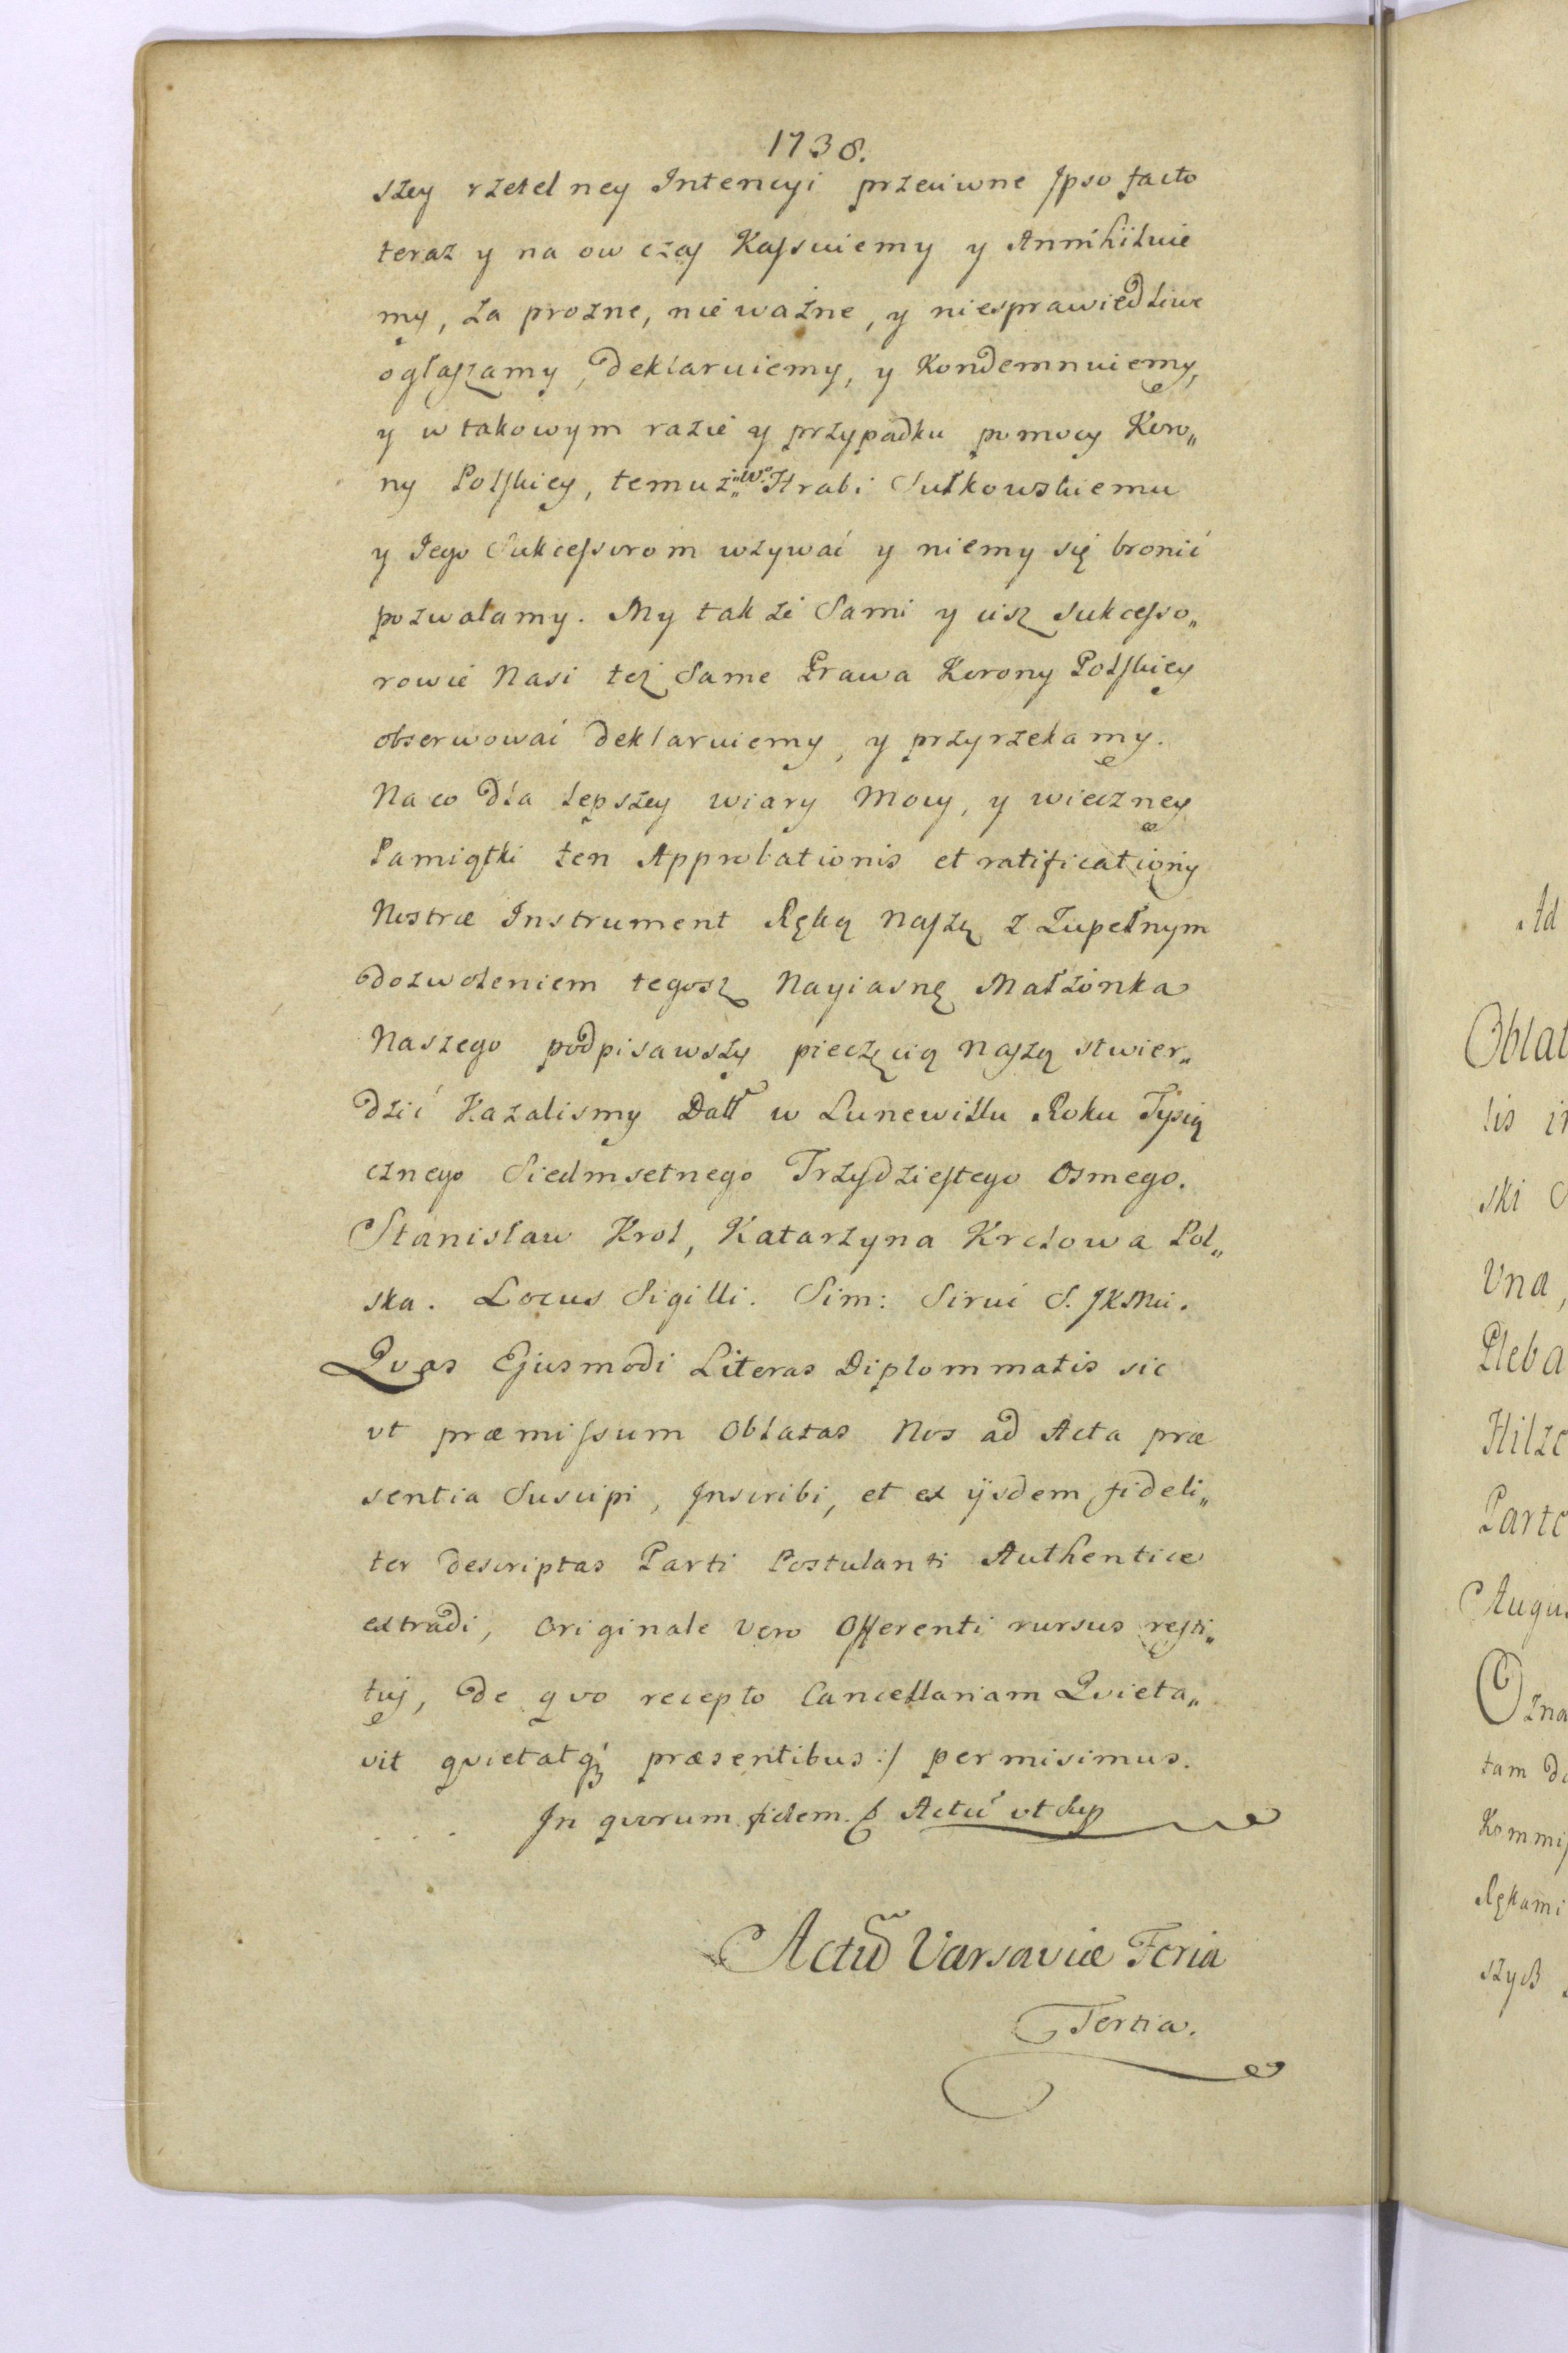 1738.
szey rzetelney Intencyi przeciwne Ipso facto
teraz y na ow czas Kassuiemy y Annihiluie
my, za prozne, nie ważne, y niesprawiedliwe
ogłaszamy, deklaruiemy, y Kondemnuiemy,
y w takowym razie y przypadku pomocy Koro„
ny Polskiey, temuż „Wo. Hrabi Sułkowskiemu
y Jego Sukcessorom wzywać y niemy się bronić
pozwalamy. My także Sami y cisz Sukcesso„
rowie Nasi też Same Prawa Korony Polskiey
obserwować deklaruiemy, y przyrzekamy.
Na co dla lepszey wiary Mocy, y wieczney
Pamiątki ten Approbationis et ratificationis
Nostræ Instrument Ręką Naszą z Zupełnym
dozwoleniem tegosz Nayiasnę Małżonka
Naszego podpisawszy pieczęcią Naszą stwier„
dzić Kazalismy Datt w Lunewillu Roku Tysią
cznego Siedmsetnego Trzydziestego Osmego.
Stanisław Krol, Katarzyna Krolowa Pol„
ska. Locus Sigilli. Sim: Siruć S. JKMci.
Qvas Ejusmodi Literas Diplommatis sic
vt præmissum Oblatas Nos ad Acta præ
sentia Suscipi, Inscribi, et ex ijsdem fideli„
ter descriptas Parti Postulanti Authentice
extradi, Originale vero Offerenti rursus resti„
tuj, de qvo recepto Cancellariam Qvieta„
vit qvietatq; præsentibus :/ permisimus.
In qvorum fidem. Actũ vt Sup
Actũ Varsaviæ Feria
Tertia.
Ad
Oblat
lis in
ski
Vna,
Pleba
Hilze
Parte
Augus
Ozna
tam
Kommis
Rękami
szych